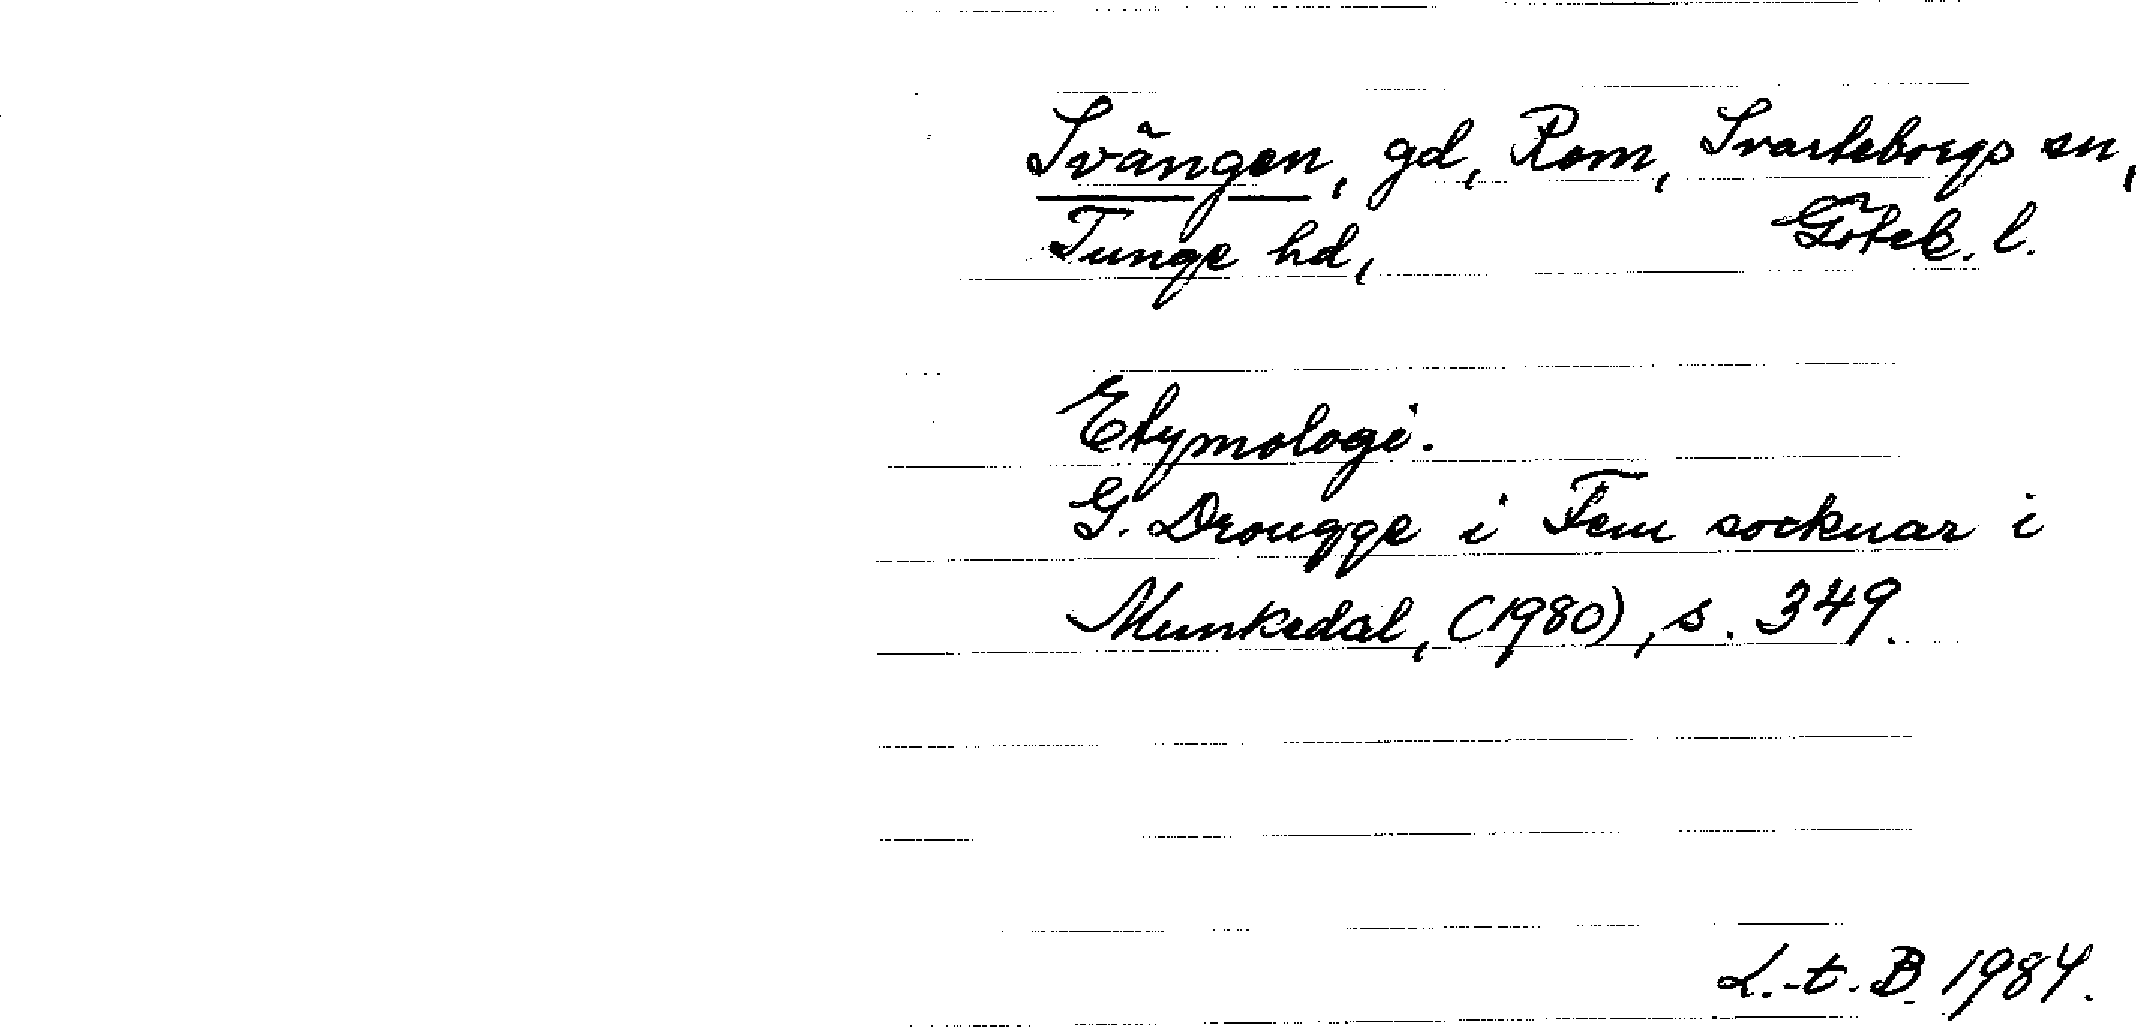 Svängen, gd, Rom, Svarteborgs sn,
Tunge hd, Göteb. l.
Etymologi.
G. Drougge i Fem socknar i
Munkedal, (1980), s. 349.
L.-t. B. 1984.